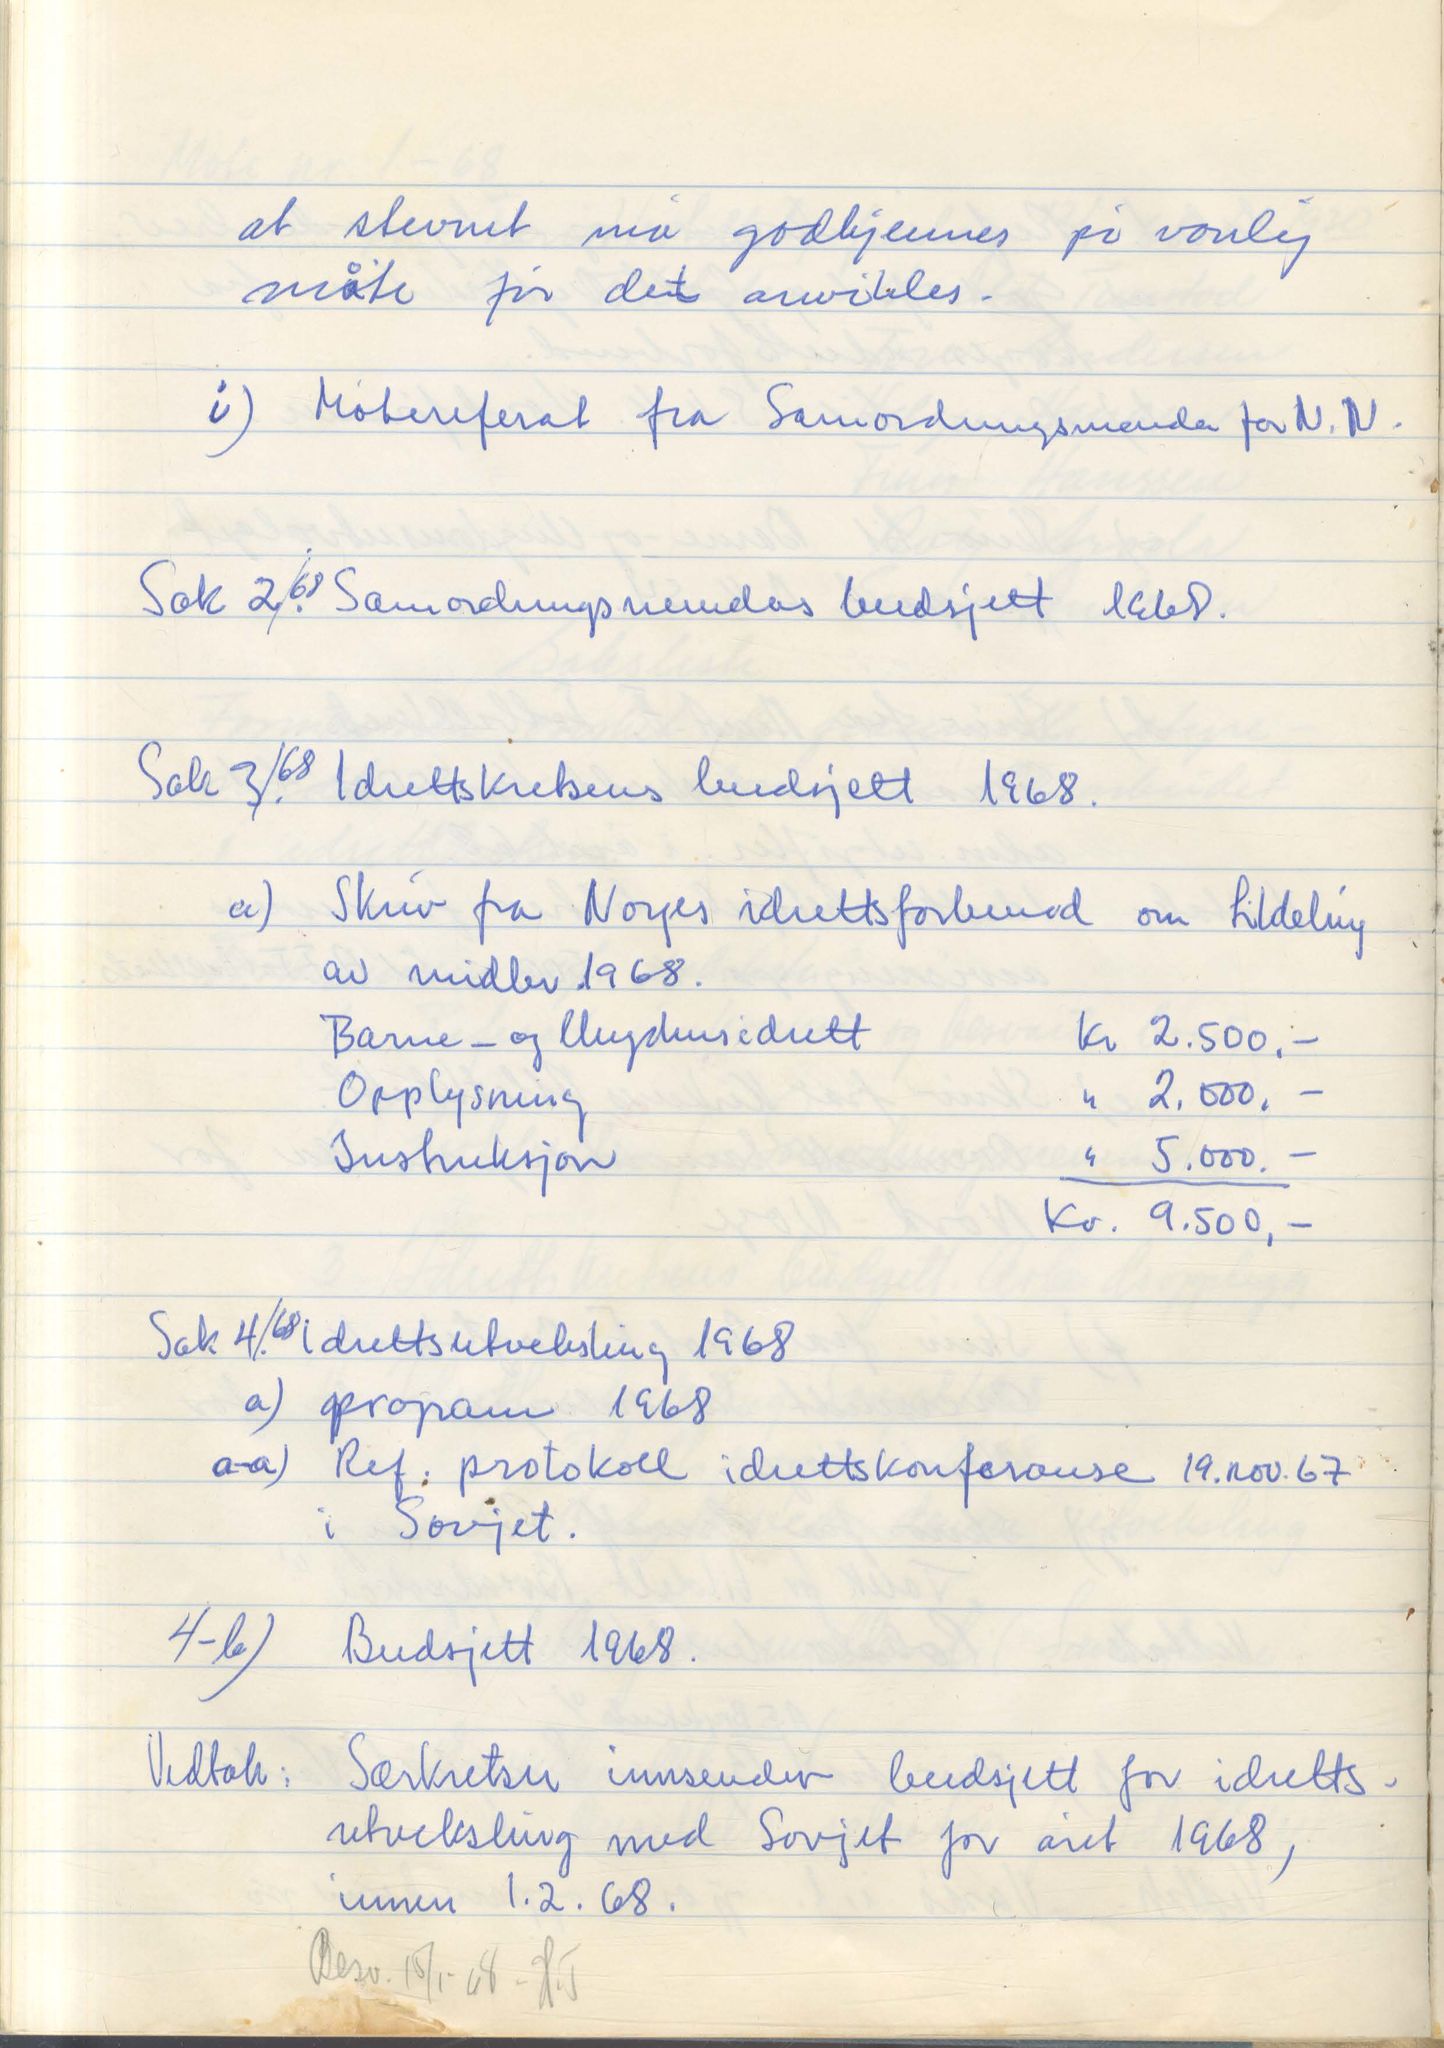 at stevnet må godkjennes på vanlig
måte før det avvikles.
i) Møtereferat fra Samordningsnemda for N.N.
Sak 2/68. Samordningsnemdas budsjett 1968.
Sak 3/68. Idrettskretsens budsjett 1968.
a) Skriv fra Norges idrettsforbund om tildeling
av midler 1968.
Barne- og Ungdomsidrett Kr 2.500,-
Opplysning " 2.000,-
Instruksjon " 5.000.-
Kr. 9.500,-
Sak 4/68. idrettsutveksling 1968
a) program 1968
a-a) Ref. protokoll idrettskonferanse 19.nov.67
i Sovjet.
4-b) Budsjett 1968.
Vedtak: Særkretser innsender budsjett for idretts-
utveksling med Sovjet for året 1968,
innen 1.2.68.
Besv. 18/1-68-